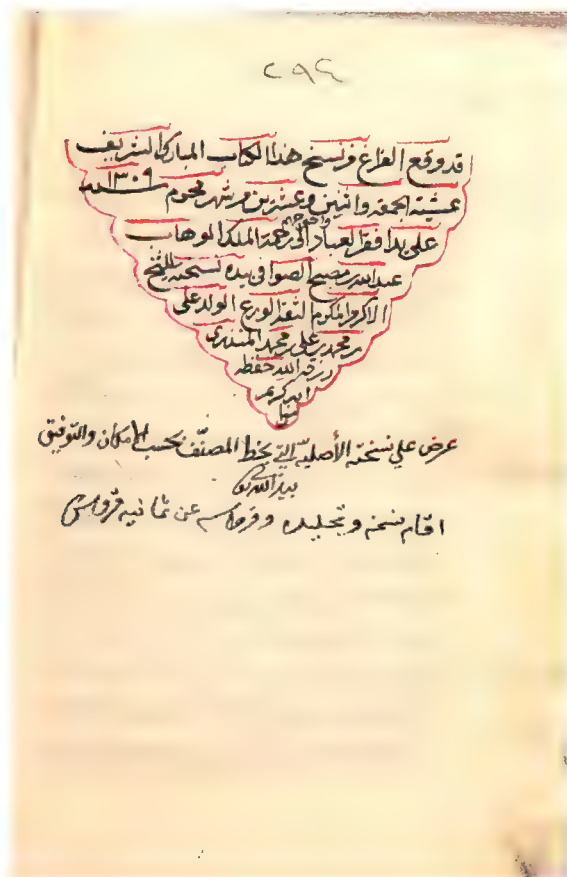 ٢٩٤
قد وقع الفراغ من نسخ هذا الكتاب المبارك الشريف
عشية الجمعة واثنين وعشرين من شهر محرم سنة ١٣٠٩
على يد افقر العباد واحوجهم الى رحمة الملك الوهاب
عبد الله بن مصبح الصوافي بيده نسخه للشيخ
الاكرم المكرم الثقة الورع الولد علي
بن محمد بن علي بن محمد المنذري
رزقه الله حفظه
انه كريم
عرض على نسخته الأصلية التي بخط المصنّف بحسب الإمكان والتوفيق
بيد الله
نسخه وتجليده وقرطاسه عن ثمانية قروش